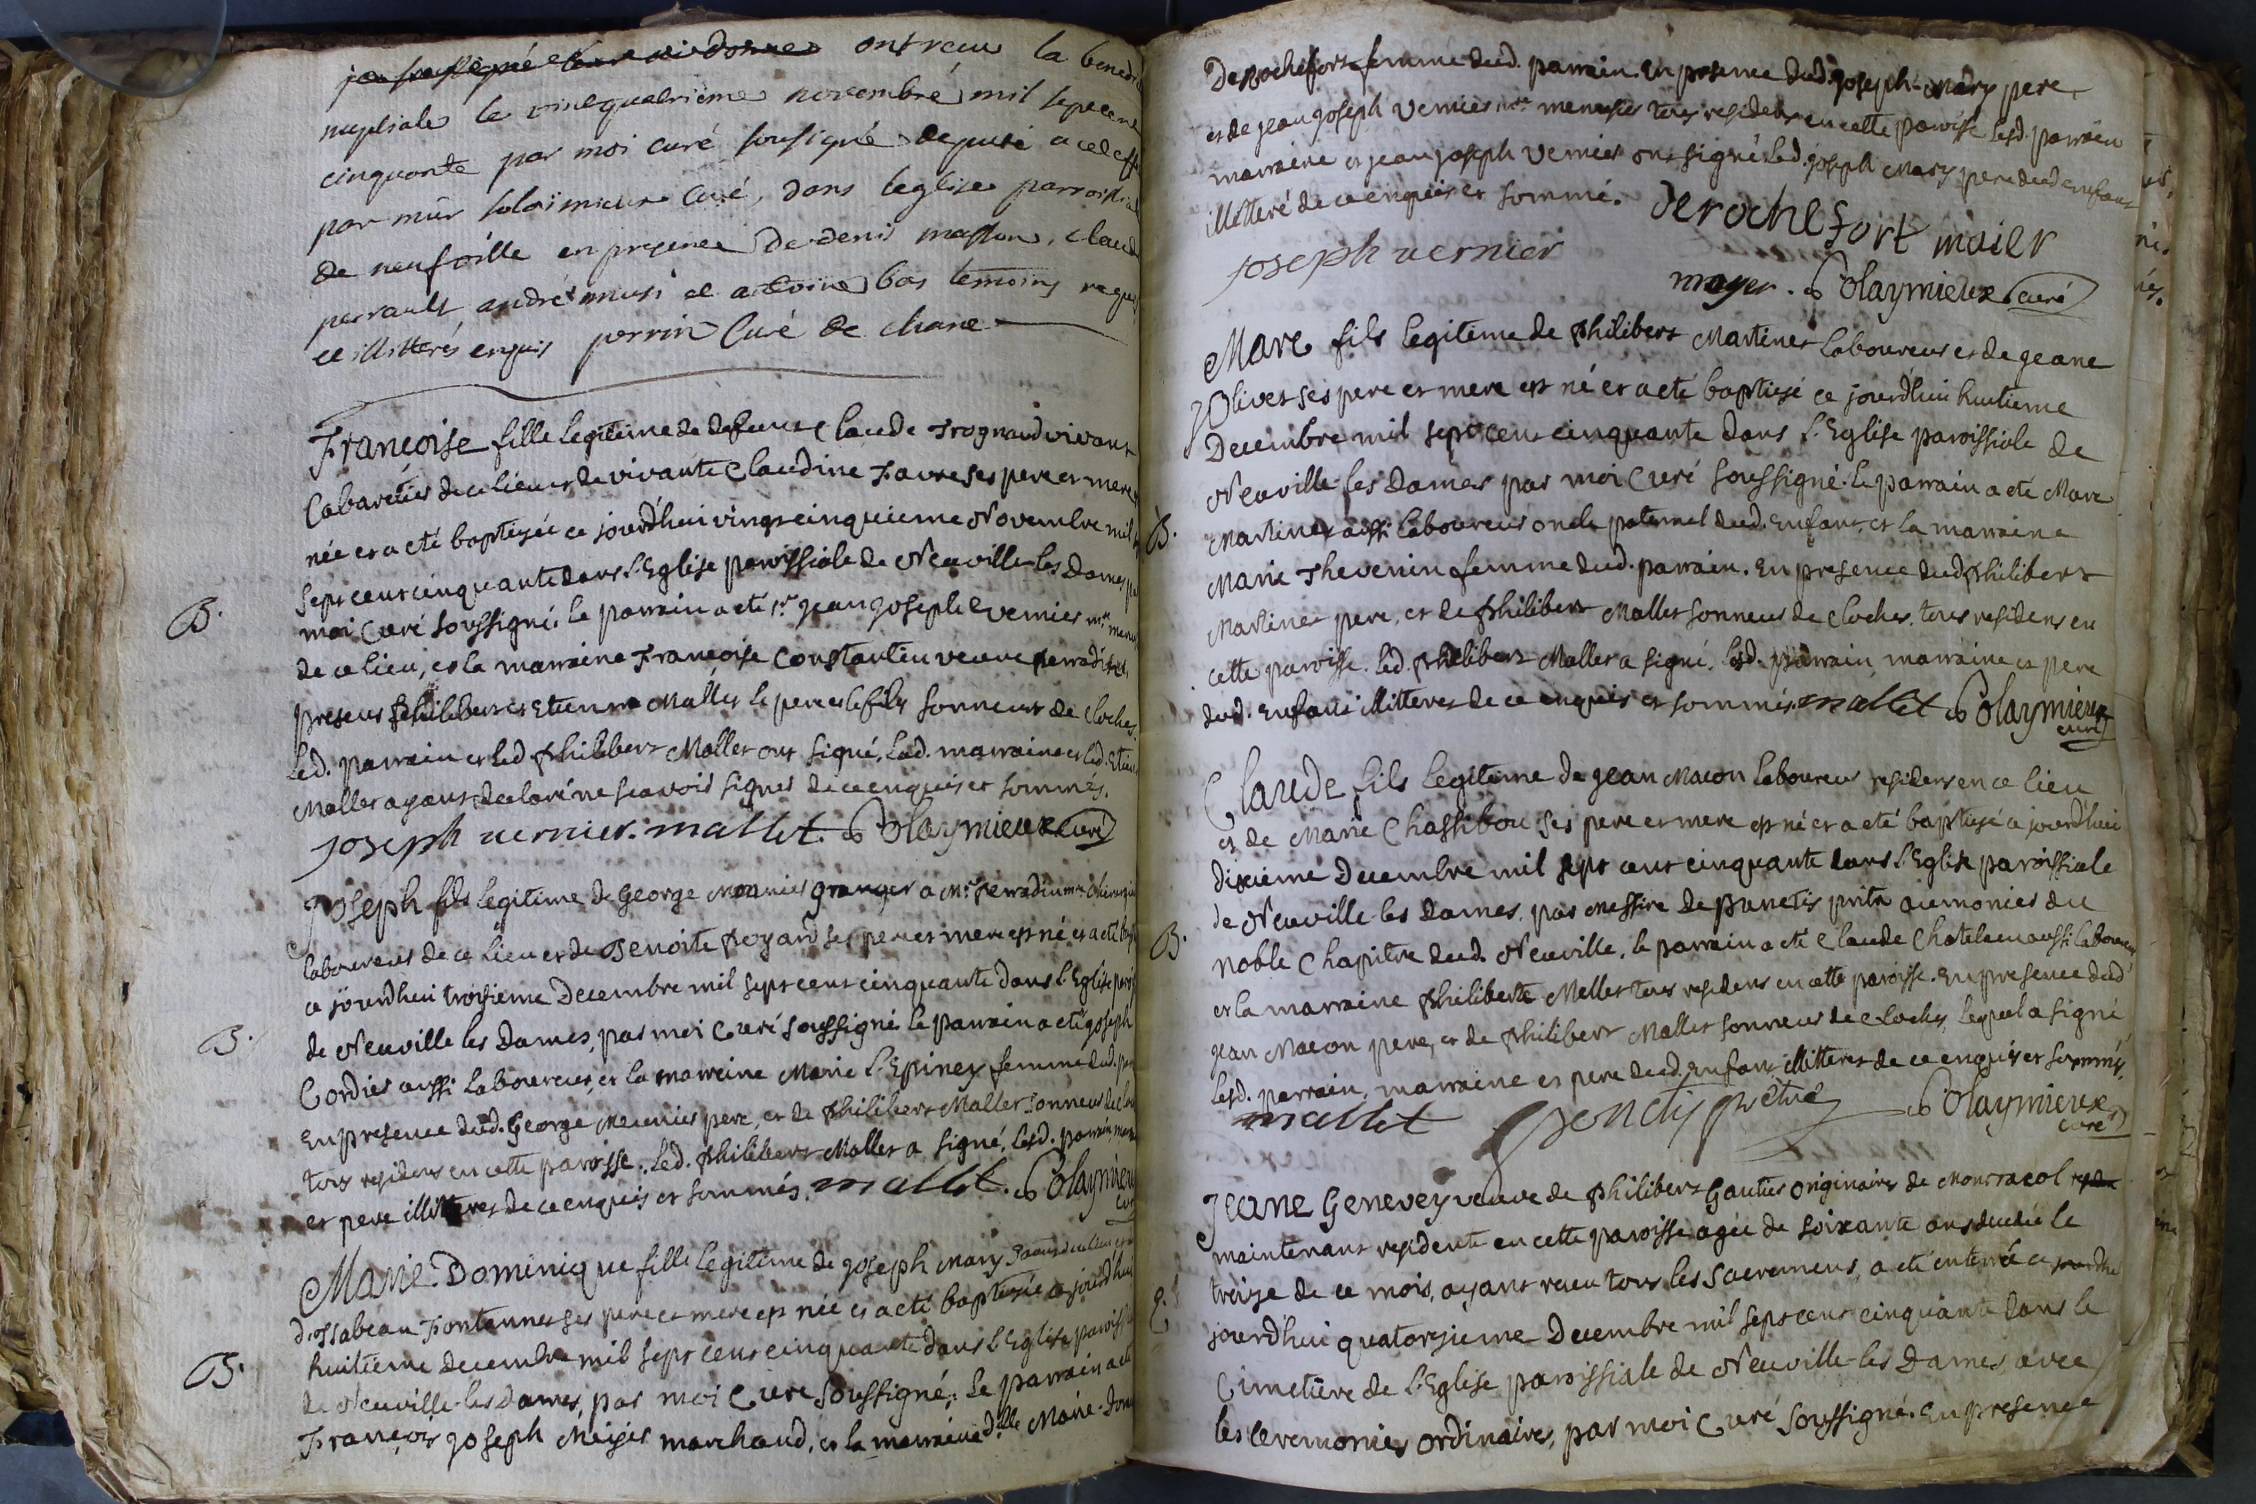 ont reçu la bened
nuptiale le vint quatrième novembre mil sept cent
cinquante par moi curé sousigné deputé a cet eff
par mūr solaimieux curé, dans leglise parroissial
de neufville en presence de denis masson, claud
perrault andré musi et antoine bas temoins requis
et illitterés enquis perrin Curé de chane
Françoise fille legitime de defunt Claude Trognard vivant
Cabaretier de ce lieu et de vivante Claudine Favre ses pere et mere
née et a eté baptisée ce jourd'hui vingt cinquieme Novembre mil
Sept cent cinquante dans l'Eglise paroissiale de Neuville les Dames
B.
moi Curé soussigné. le parrain a eté sr. jean joseph Vernier mtre
de ce lieu, et la marraine Françoise Constantin veuve
presens philibert et Etienne Mallet le pere et le fils sonneurs de cloches
Led. parrain et led philibert Mallet ont signé, Lad. marraine et led. Etien
Mallet ayant declaré ne sçavoir signer de ce enquis et sommés.
joseph vernier. mallet. Solaymieux curé
Joseph fils legitime de George Meunier granger a Mr. Perradin
laboureur de ce lieu et de Benoite Poyard ses pere et mere est né et a eté
ce jourd'hui troisieme Decembre mil sept cent cinquante dans l'Eglise
B.
de Neuville les Dames, par moi Curé soussigné le parrain a eté joseph
Cordier aussi Laboureur, et la marreine Marie l'Epiney femme dud.
En presence dud. George Meunier pere, et de philibert Mallet sonneur de
tous residens en cette paroisse. Led. philibert Mallet a signé, lesd. parrain
et pere illitteres de ce enquis et sommés. mallet. Solaymieux
curé
Marie-Dominique fille legitime de joseph Mary
d'Issabeau Fontannet ses pere et mere est née et a eté baptisée ce jourd'hui
huitieme decembre mil sept cent cinquante dans l'Eglise
B.
de Neuville-les Dames, par moi Curé soussigné; Le parrain a eté
François joseph Meyer marchand, et la marraine dlle Marie-Dom
De Rochefort femme dud. parrain En presence dud. joseph Mary pere
et de jean joseph Vernier mtre menusier tous residens en cette paroisse lesd. parrain
marraine et jean joseph Vernier ont signé Led. joseph Mary pere dud enfant
illitteré de ce enquis et sommé. derochefort maier
joseph vernier
mayer. Solaymieux curé
Marc fils legitime de philibert Martinet laboureur et de jeane
Olivet ses pere et mere est né et a eté baptisé ce jourd'hui huitieme
Decembre mil sept cent cinquante dans l'Eglise paroissiale de
Neuville-les Dames par moi Curé soussigné. Le parrain a eté Marc
B.
Martinet aussi laboureur oncle paternel dud. Enfant, et la marraine
Marie Thevenin femme dud. parrain. En presence dud philibert
Martinet pere, et de philibert Mallet sonneur de cloches, tous residens en
cette paroisse. led. philibert Mallet a signé. lesd. parrain marraine et pere
dud. enfant illitteres de ce enquis et sommés. mallet Solaymieux
curé
Claude fils legitime de jean Macon laboureur residens en ce lieu
et de Marie Chassibou ses pere et mere est né et a eté baptisé ce jourd'hui
dixieme Decembre mil sept cent cinquante dans l'Eglise paroissiale
de Neuville les Dames, par messire De Punctis prêtre aumonier du
B.
noble Chapitre dud. Neuville. le parrain a eté Claude Chatelain aussi laboureur
et la marraine philiberte Mallet tous residens en cette paroisse. En presence dud
jean Macon pere, et de philibert Mallet sonneur de cloches, lequel a signé
lesd. parrain, marraine et pere dud. enfant illitteres de ce enquis et sommés.
mallet Ponctis prêtre Solaymieux
curé
Jeane Genevey veuve de philibert Gautier originaire de Montracol
maintenant residente en cette paroisse agée de soixante ans decedée le
treize de ce mois, ayant reçu tous les sacremens, a eté enterrée ce
jourd'hui quatorzieme Decembre mil sept cent cinquante dans le
Cimetiere de l'Eglise paroissiale de Neuville-les Dames avec
les ceremonies ordinaires, par moi Curé soussigné. En presence